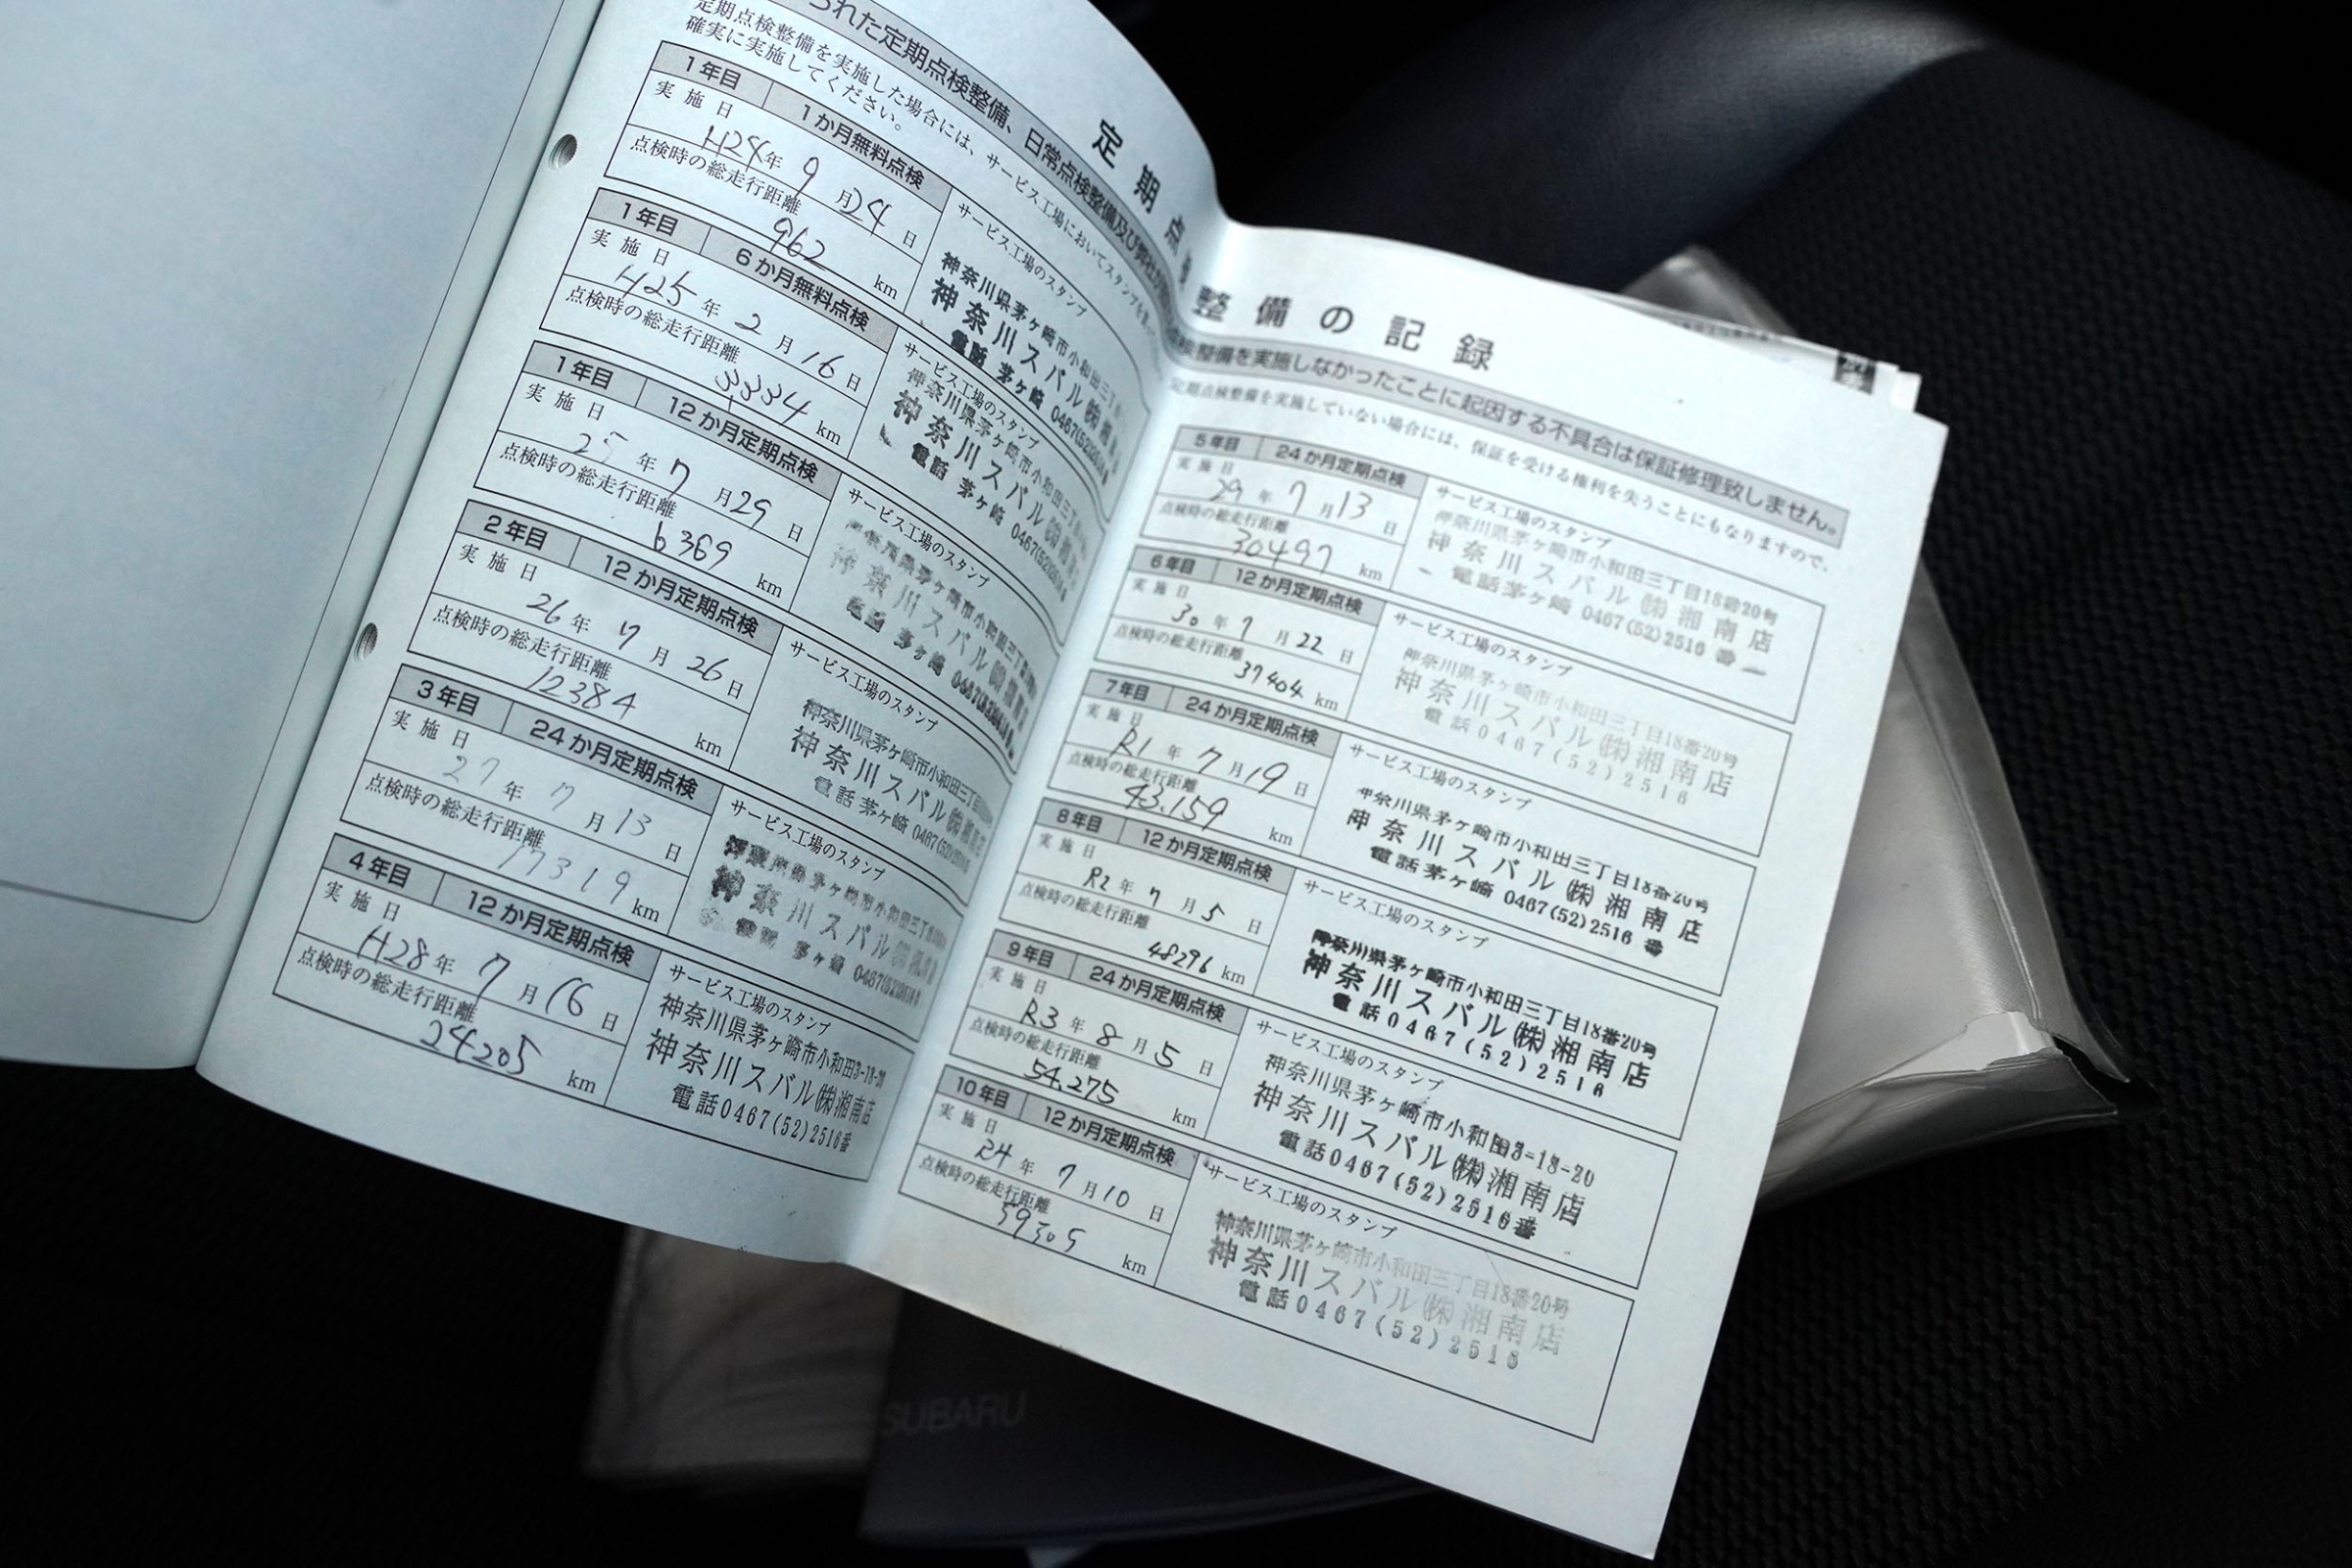 定期点
られた定期点検整備、日常点検整備及び弊社が
定期点検整備を実施した場合には、サービス工場においてスタンプを
確実に実施してください。
1年目 1か月無料点検
実施日
H24年 9月24日
点検時の総走行距離
962 km
サービス工場のスタンプ
神奈川県茅ヶ崎市小和田三丁
神奈川スバル㈱
電話 茅ヶ崎 0467(52)
1年目 6か月無料点検
実施日
H25年 2月16日
点検時の総走行距離
3334 km
サービス工場のスタンプ
神奈川県茅ヶ崎市小和田三丁
神奈川スバル㈱
電話 茅ヶ崎 0467(52)
1年目 12か月定期点検
実施日
25年 7月29日
点検時の総走行距離
6369 km
サービス工場のスタンプ
神奈川スバル㈱
茅ヶ崎
2年目 12か月定期点検
実施日
26年 7月26日
点検時の総走行距離
12384 km
サービス工場のスタンプ
神奈川県茅ヶ崎市小和田三丁目
神奈川スバル㈱
電話茅ヶ崎 0467(52)
3年目 24か月定期点検
実施日
27年 7月13日
点検時の総走行距離
17319 km
サービス工場のスタンプ
茅ヶ崎市小和田三丁目
神奈川スバル㈱
茅ヶ崎 0467(52)
4年目 12か月定期点検
実施日
H28年 7月16日
点検時の総走行距離
24205 km
サービス工場のスタンプ
神奈川県茅ヶ崎市小和田3-18-20
神奈川スバル㈱湘南店
電話0467(52)2516番
整備の記録
検整備を実施しなかったことに起因する不具合は保証修理致しません。
定期点検整備を実施していない場合には、保証を受ける権利を失うことにもなりますので、
5年目 24か月定期点検
実施日
29年 7月13日
点検時の総走行距離
30497 km
サービス工場のスタンプ
神奈川県茅ヶ崎市小和田三丁目18番20号
神奈川スバル㈱湘南店
電話茅ヶ崎 0467(52)2516番
6年目 12か月定期点検
実施日
30年 7月22日
点検時の総走行距離
37404 km
サービス工場のスタンプ
神奈川県茅ヶ崎市小和田三丁目18番20号
神奈川スバル㈱湘南店
電話0467(52)2516
7年目 24か月定期点検
実施日
R1年 7月19日
点検時の総走行距離
43,159 km
サービス工場のスタンプ
神奈川県茅ヶ崎市小和田三丁目18番20号
神奈川スバル㈱湘南店
電話茅ヶ崎 0467(52)2516番
8年目 12か月定期点検
実施日
R2年 7月5日
点検時の総走行距離
48296 km
サービス工場のスタンプ
神奈川県茅ヶ崎市小和田三丁目18番20号
神奈川スバル㈱湘南店
電話0467(52)2516
9年目 24か月定期点検
実施日
R3年 8月5日
点検時の総走行距離
54,275 km
サービス工場のスタンプ
神奈川県茅ヶ崎市小和田3-18-20
神奈川スバル㈱湘南店
電話0467(52)2516番
10年目 12か月定期点検
実施日
R4年 7月10日
点検時の総走行距離
59305 km
サービス工場のスタンプ
神奈川県茅ヶ崎市小和田三丁目18番20号
神奈川スバル㈱湘南店
電話0467(52)2516
SUBARU